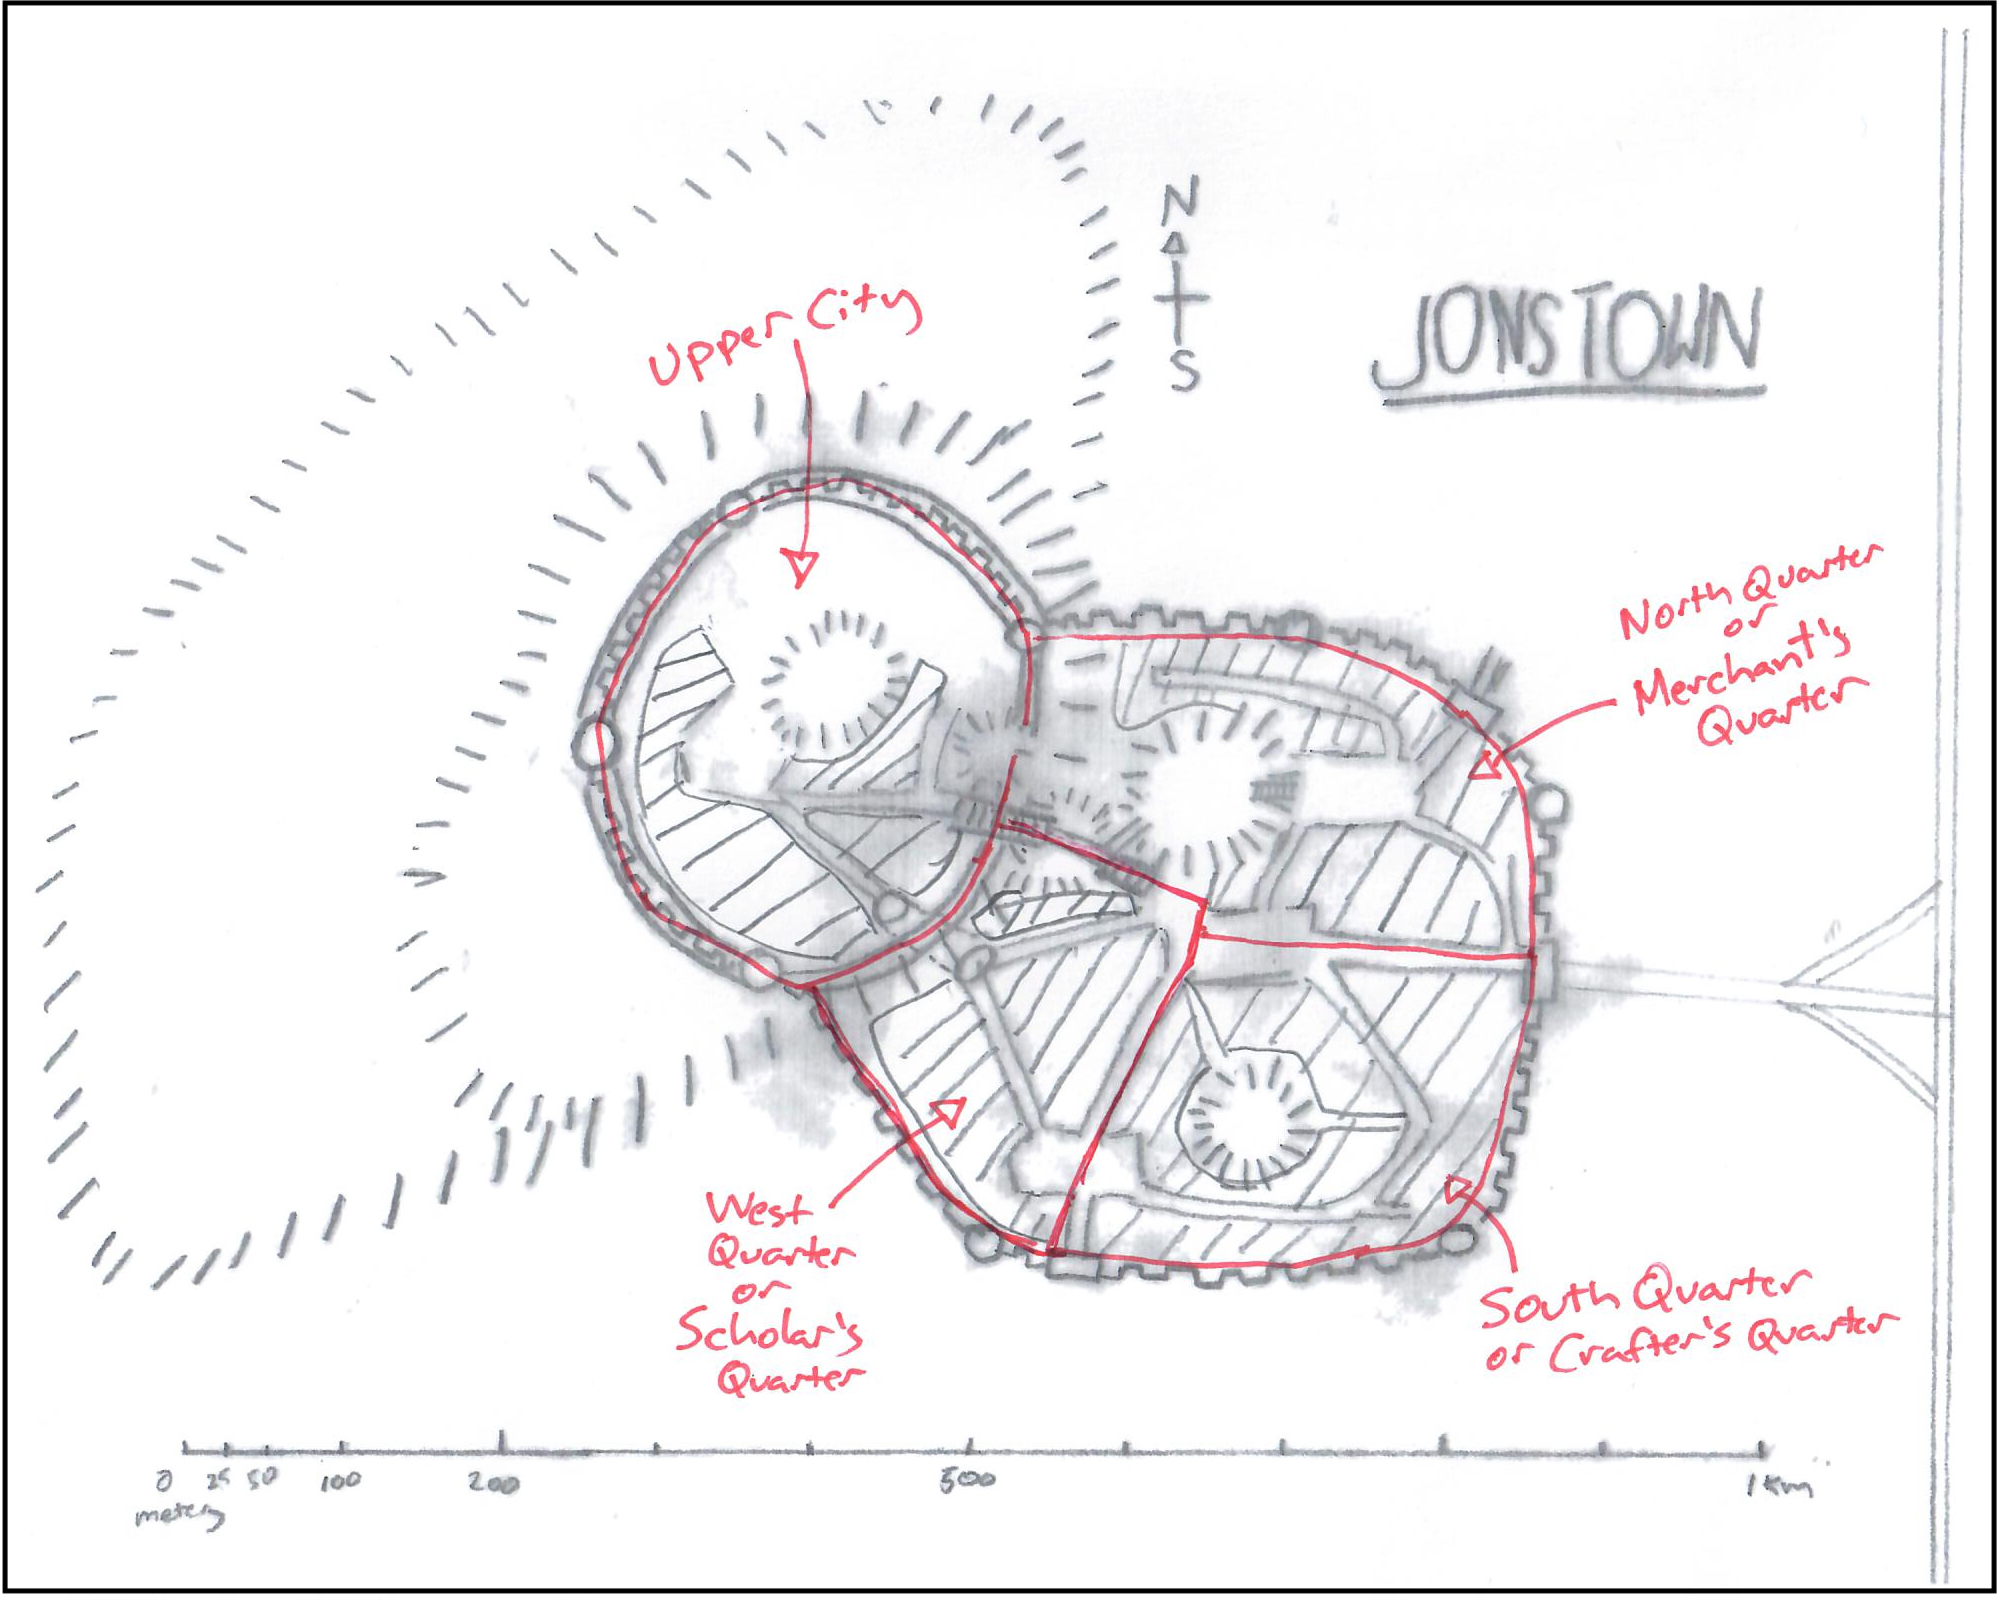 N
S
JONSTOWN
Upper City
North Quarter
or
Merchant's
Quarter
West
Quarter
or
Scholar's
Quarter
South Quarter
or Crafter's Quarter
0 25 50 100 200 500 1 km
meters